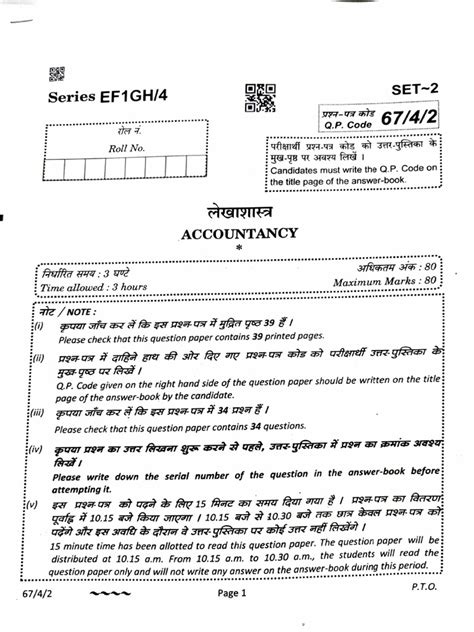 Series EF1GH/4
SET~2
प्रश्न-पत्र कोड
Q.P. Code 67/4/2
रोल नं.
Roll No.
परीक्षार्थी प्रश्न-पत्र कोड को उत्तर-पुस्तिका के
मुख-पृष्ठ पर अवश्य लिखें ।
Candidates must write the Q.P. Code on
the title page of the answer-book.
लेखाशास्त्र
ACCOUNTANCY
*
निर्धारित समय : 3 घण्टे
अधिकतम अंक : 80
Time allowed : 3 hours
Maximum Marks : 80
नोट / NOTE :
(i) कृपया जाँच कर लें कि इस प्रश्न-पत्र में मुद्रित पृष्ठ 39 हैं ।
Please check that this question paper contains 39 printed pages.
(ii) प्रश्न-पत्र में दाहिने हाथ की ओर दिए गए प्रश्न-पत्र कोड को परीक्षार्थी उत्तर-पुस्तिका के
मुख-पृष्ठ पर लिखें ।
Q.P. Code given on the right hand side of the question paper should be written on the title
page of the answer-book by the candidate.
(iii) कृपया जाँच कर लें कि इस प्रश्न-पत्र में 34 प्रश्न हैं ।
Please check that this question paper contains 34 questions.
(iv) कृपया प्रश्न का उत्तर लिखना शुरू करने से पहले, उत्तर-पुस्तिका में प्रश्न का क्रमांक अवश्य
लिखें ।
Please write down the serial number of the question in the answer-book before
attempting it.
(v) इस प्रश्न-पत्र को पढ़ने के लिए 15 मिनट का समय दिया गया है । प्रश्न-पत्र का वितरण
पूर्वाह्न में 10.15 बजे किया जाएगा । 10.15 बजे से 10.30 बजे तक छात्र केवल प्रश्न-पत्र को
पढ़ेंगे और इस अवधि के दौरान वे उत्तर-पुस्तिका पर कोई उत्तर नहीं लिखेंगे ।
15 minute time has been allotted to read this question paper. The question paper will be
distributed at 10.15 a.m. From 10.15 a.m. to 10.30 a.m., the students will read the
question paper only and will not write any answer on the answer-book during this period.
67/4/2
~~~~
Page 1
P.T.O.